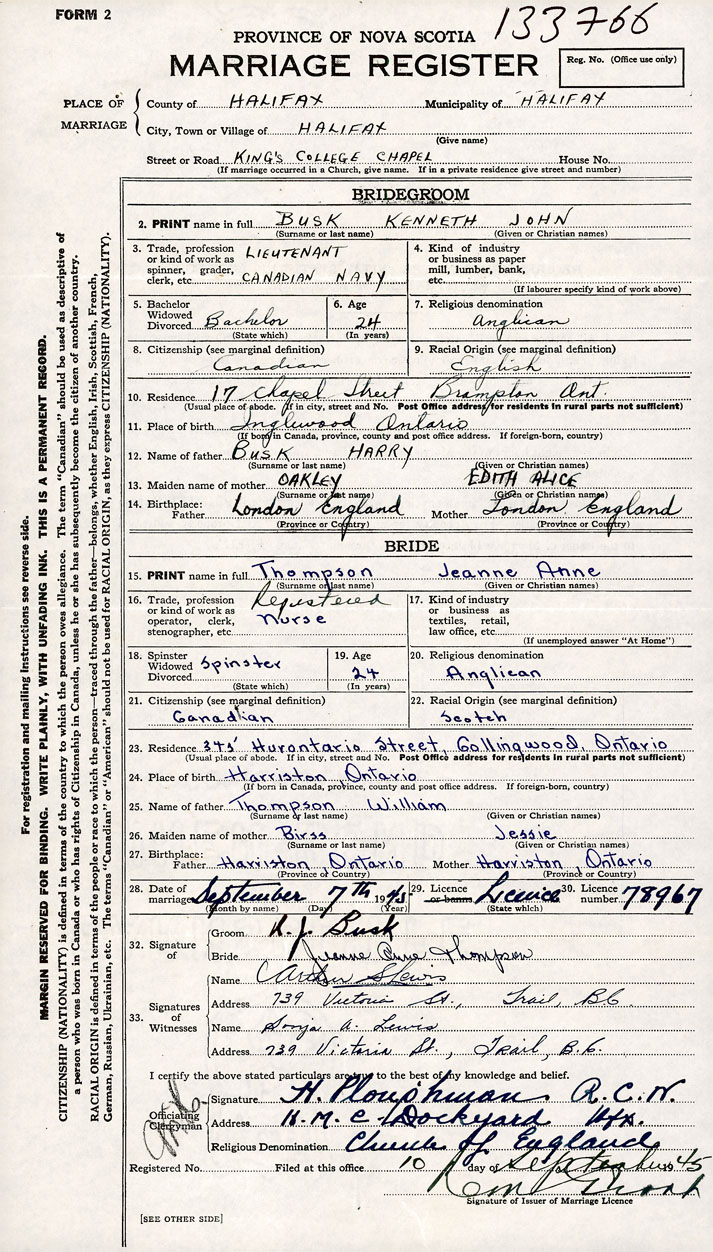 FORM 2
133766
PROVINCE OF NOVA SCOTIA
MARRIAGE REGISTER
Reg. No. (Office use only)
PLACE OF MARRIAGE
County of HALIFAX Municipality of HALIFAX
City, Town or Village of HALIFAX
(Give name)
Street or Road KING'S COLLEGE CHAPEL House No.
(If marriage occurred in a Church, give name. If in a private residence give street and number)
BRIDEGROOM
2. PRINT name in full BUSK KENNETH JOHN
(Surname or last name) (Given or Christian names)
3. Trade, profession or kind of work as spinner, grader, clerk, etc. LIEUTENANT CANADIAN NAVY
4. Kind of industry or business as paper mill, lumber, bank, etc.
(If labourer specify kind of work above)
5. Bachelor Widowed Divorced Bachelor
(State which)
6. Age 24
(In years)
7. Religious denomination
Anglican
8. Citizenship (see marginal definition)
Canadian
9. Racial Origin (see marginal definition)
English
10. Residence 17 Chapel Street Brampton Ont.
(Usual place of abode. If in city, street and No. Post Office address for residents in rural parts not sufficient)
11. Place of birth Inglewood Ontario
(If born in Canada, province, county and post office address. If foreign-born, country)
12. Name of father BUSK HARRY
(Surname or last name) (Given or Christian names)
13. Maiden name of mother OAKLEY EDITH ALICE
(Surname or last name) (Given or Christian names)
14. Birthplace: Father London England Mother London England
(Province or Country) (Province or Country)
BRIDE
15. PRINT name in full Thompson Jeanne Anne
(Surname or last name) (Given or Christian names)
16. Trade, profession or kind of work as operator, clerk, stenographer, etc. Registered Nurse
17. Kind of industry or business as textiles, retail, law office, etc.
(If unemployed answer "At Home")
18. Spinster Widowed Divorced Spinster
(State which)
19. Age 24
(In years)
20. Religious denomination
Anglican
21. Citizenship (see marginal definition)
Canadian
22. Racial Origin (see marginal definition)
Scotch
23. Residence 345 Hurontario Street, Collingwood, Ontario
(Usual place of abode. If in city, street and No. Post Office address for residents in rural parts not sufficient)
24. Place of birth Harriston, Ontario
(If born in Canada, province, county and post office address. If foreign-born, country)
25. Name of father Thompson William
(Surname or last name) (Given or Christian names)
26. Maiden name of mother Birss Jessie
(Surname or last name) (Given or Christian names)
27. Birthplace: Father Harriston, Ontario Mother Harriston, Ontario
(Province or Country) (Province or Country)
28. Date of marriage September 7th 1945
(Month by name) (Day) (Year)
29. Licence or banns Licence
(State which)
30. Licence number 78967
32. Signature of
Groom K. J. Busk
Bride Jeanne Anne Thompson
33. Signatures of Witnesses
Name Arthur S Lewis
Address 739 Victoria St., Trail, BC
Name Sonja A. Lewis
Address 739 Victoria St., Trail, B.C.
I certify the above stated particulars are true to the best of my knowledge and belief.
Officiating Clergyman
Signature H. Ploughman R.C.N.
Address H.M.C. Dockyard Hfx.
Religious Denomination Church of England
Registered No. Filed at this office 10 day of September 1945
Signature of Issuer of Marriage Licence
[SEE OTHER SIDE]
For registration and mailing instructions see reverse side.
MARGIN RESERVED FOR BINDING. WRITE PLAINLY, WITH UNFADING INK. THIS IS A PERMANENT RECORD.
CITIZENSHIP (NATIONALITY) is defined in terms of the country to which the person owes allegiance. The term "Canadian" should be used as descriptive of
a person who was born in Canada or who has rights of Citizenship in Canada, unless he or she has subsequently become the citizen of another country.
RACIAL ORIGIN is defined in terms of the people or race to which the person—traced through the father—belongs, whether English, Irish, Scottish, French,
German, Russian, Ukrainian, etc. The terms "Canadian" or "American" should not be used for RACIAL ORIGIN, as they express CITIZENSHIP (NATIONALITY).